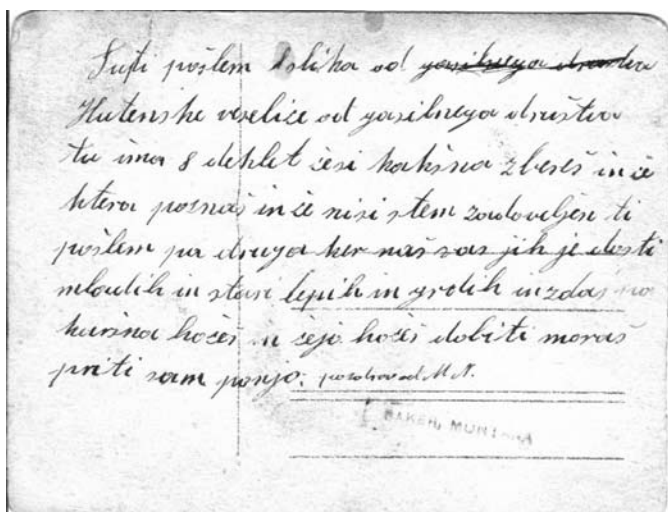 Tuti pošlem 1 slika od gasilnega društva
Hutenske veselice od gasilnega društva
tu ima 8 deklet česi kakšna zbereš in če
ktera poznaš in če nisi stem zadovoljen ti
pošlem pa druga ker naš vas jih je dosti
mladih in stari lepih in grdih in zdaj
hočeš čejo hočeš dobiti moraš
priti sam ponjo. pozdrav od M.N.
BAKER, MONTANA